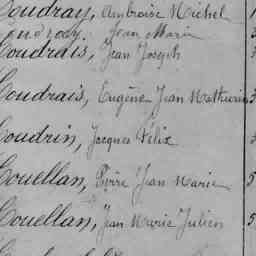 Coudray, Ambroise Michel
Coudray, Jean Marie
Coudrais, Jean Joseph
Coudrais, Eugène Jean Mathurin
Coudrin, Jacques Félix
Couellan, Pierre Jean Marie 5
Couellan, Jean Marie Julien 5